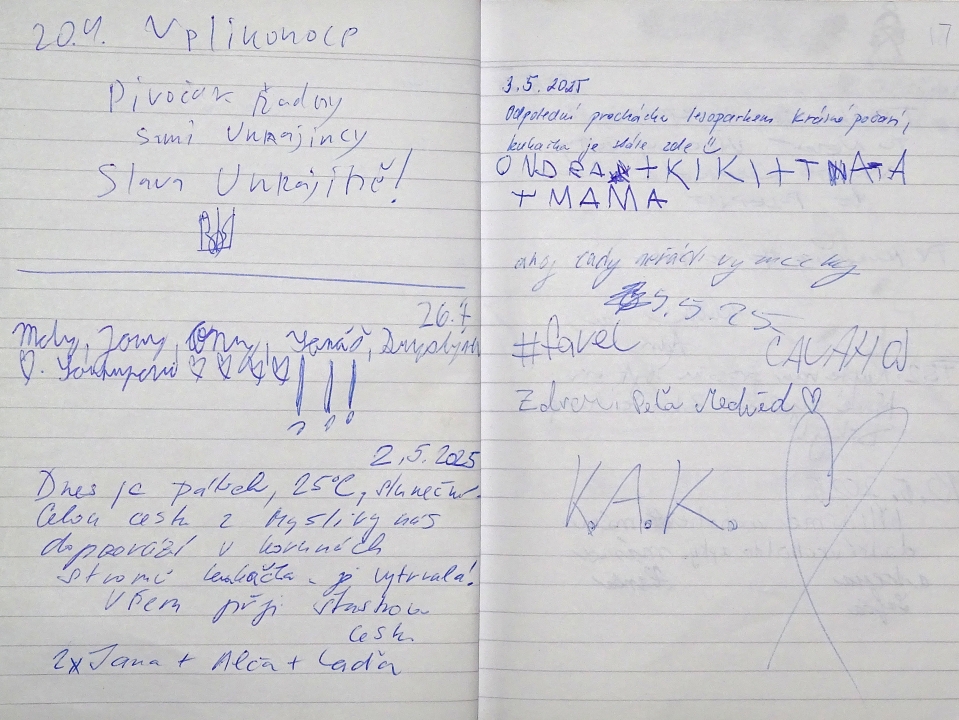 20.4. Vplikonoce
Pivočár
sami Ukrajincy
Slava Ukrajině!
26.4
Mely, Jony, Ony, Jonáš,
2.5.2025
Dnes je pátek, 25°C, slunečno.
Celou cestu z Myslivny nás
doprovází v korunách
stromů kukačka - je vytrvalá!
Všem přeji šťastnou
cestu
2x Jana + Alča + Laďa
17
3.5.2025
Odpolední procházka lesoparkem Krásné počasí,
kukačka je stále zde
ONDRA + KIKI + TNATA
+ MAMA
ahoj tady
5.5.25
#Pavel
CAUAHOJ
Zdraví Peťa Medvěd ♡
K.A.K.